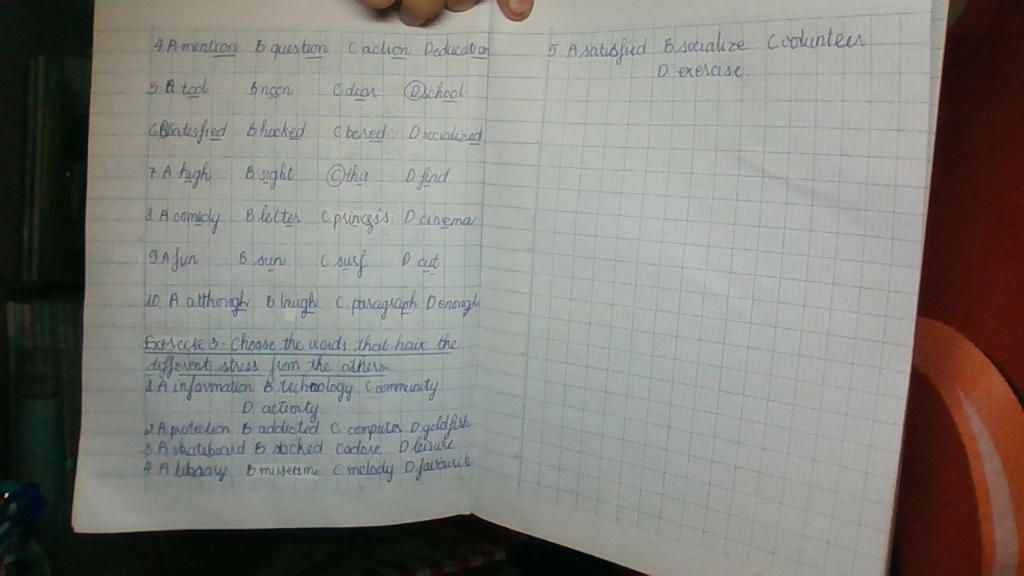 4 A mention B question C action D education
5 A tool B noon C door D school
6 A satisfied B hooked C bored D socialized
7 A high B sight C this D find
8 A comedy B letter C princess D cinema
9 A fun B sun C surf D cut
10. A although B laugh C. paragraph D enough
Exercise 3. Choose the words that have the
different stress from the others.
1 A information B technology C community
D. activity
2 A protection B addicted C. computer D goldfish
3 A skateboard B C adore D leisure
4 A library B museum C melody D favourite
5 A satisfied B. socialize C volunteer
D exercise.